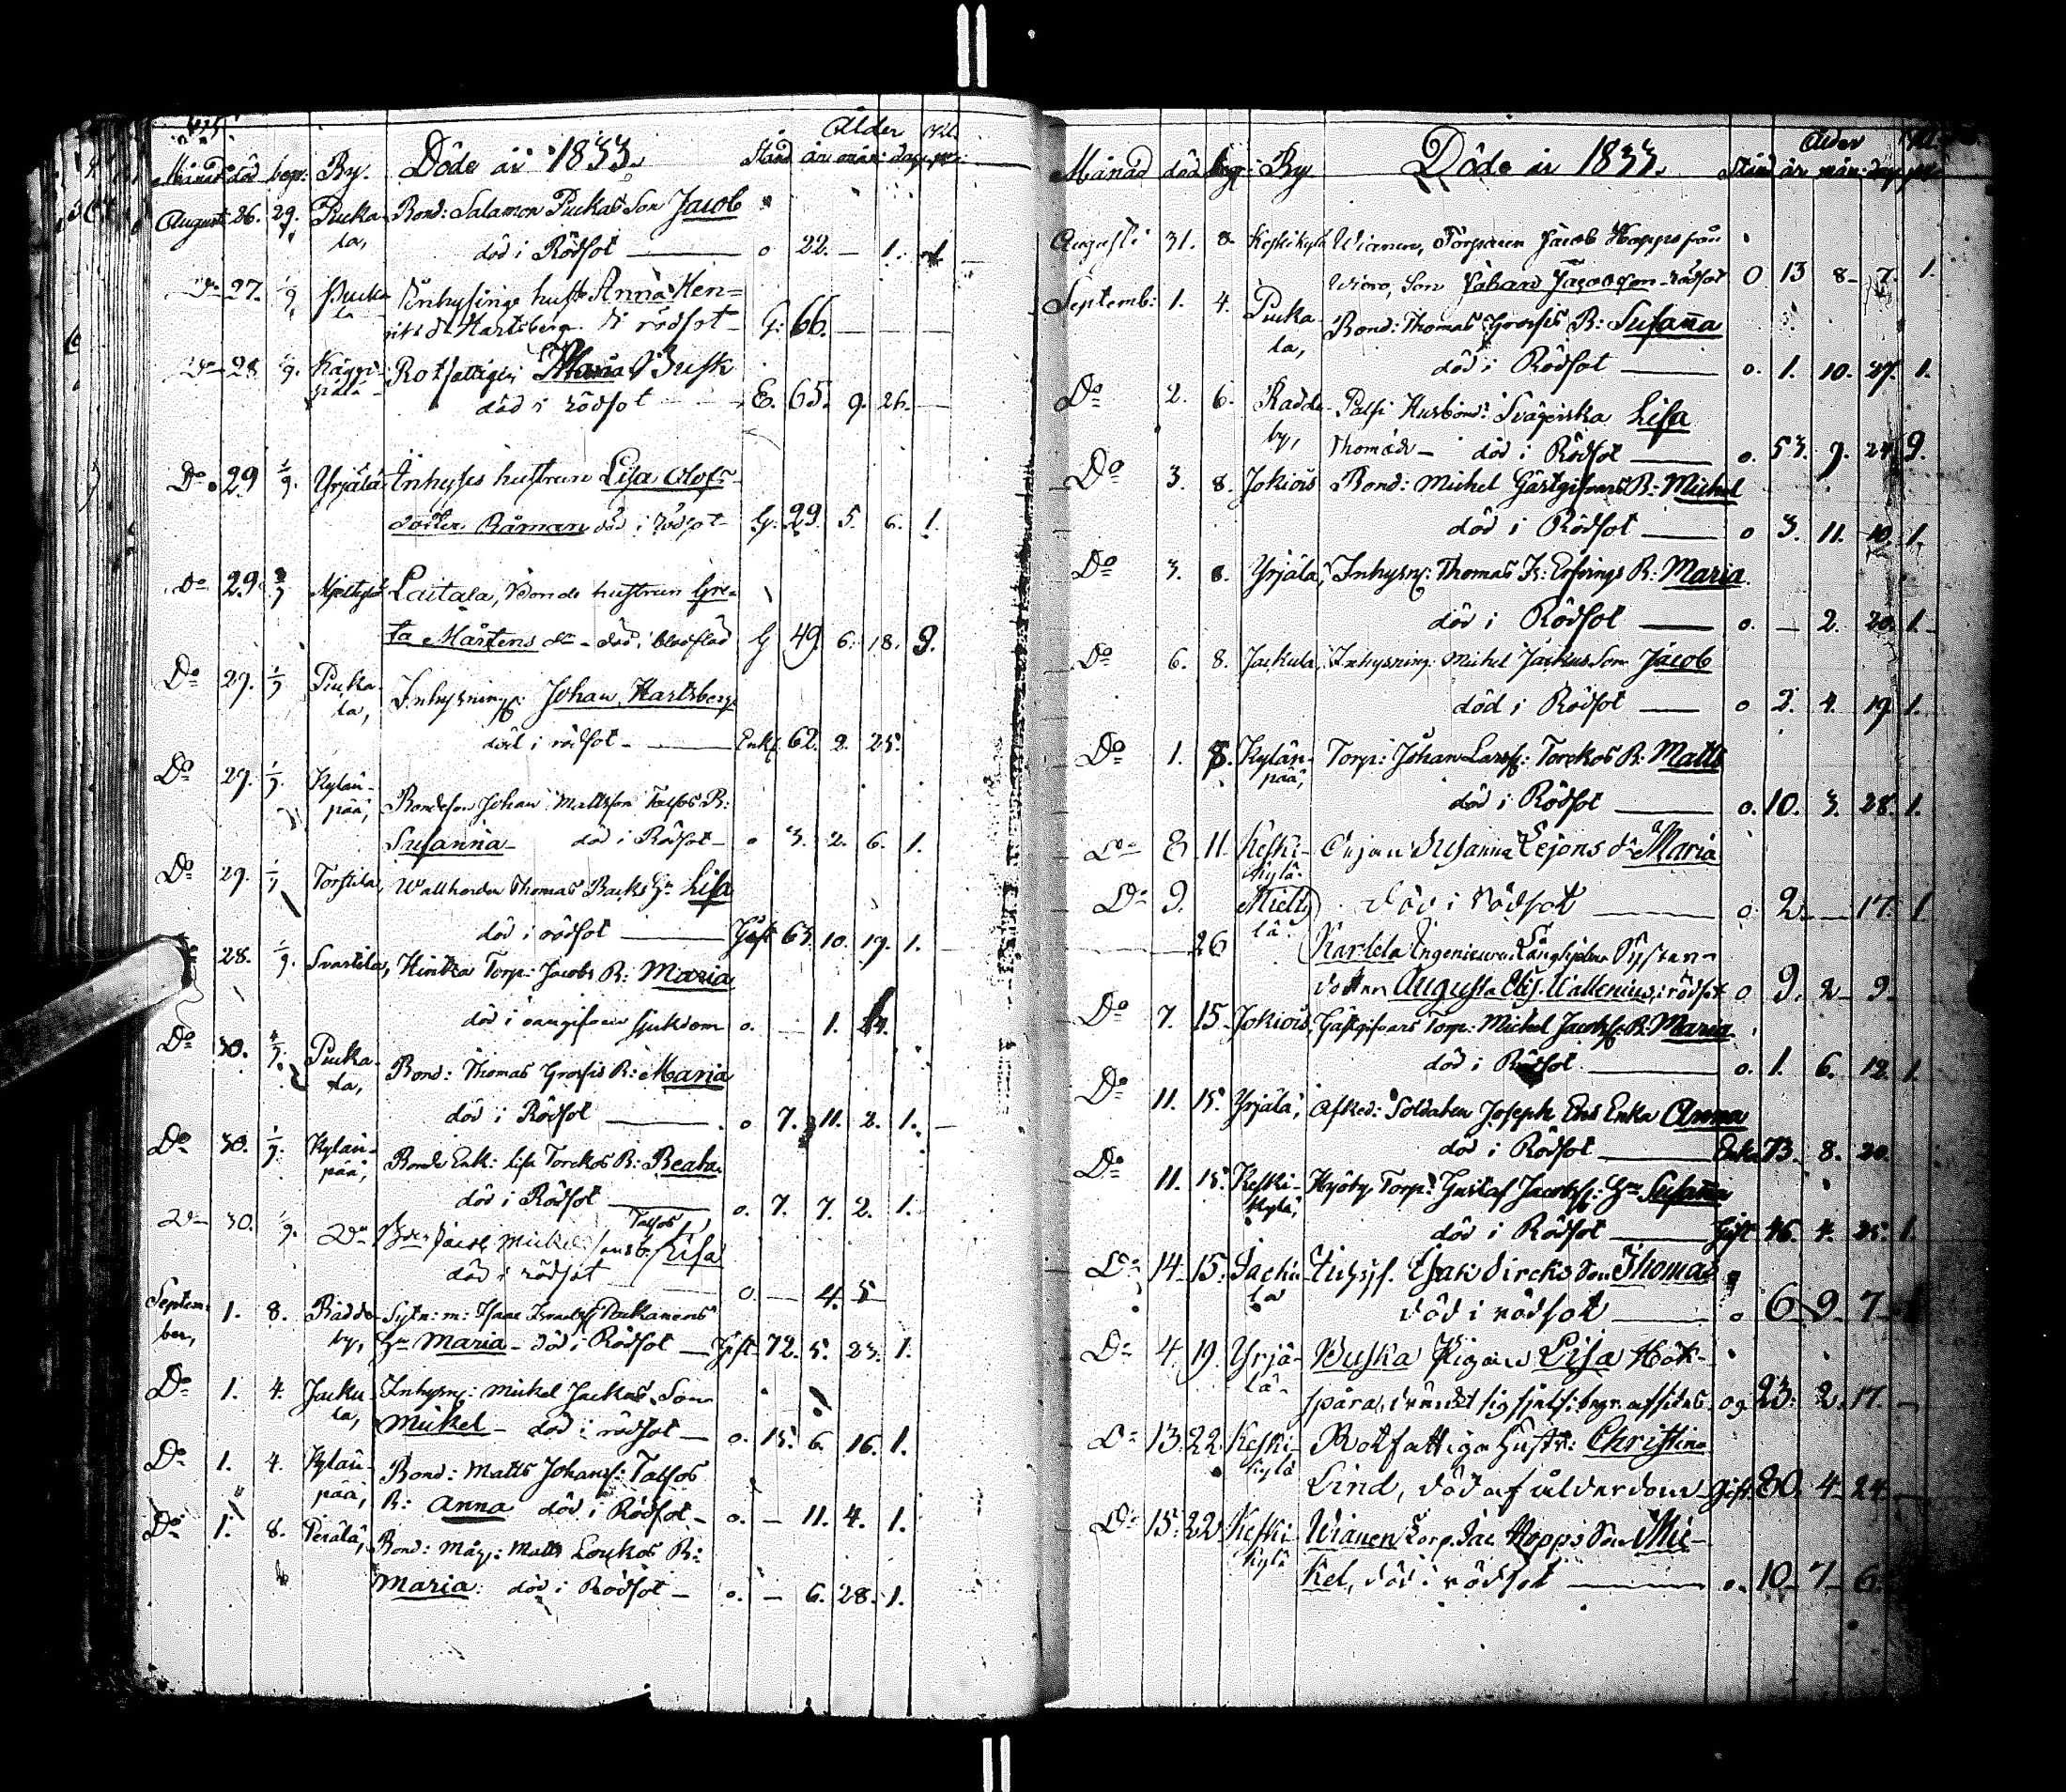 Månad död begr. By. Döde år 1833. Stånd år mån: dag.
Ålder
Augusti 26. 29. Puckala, Bond: Salamon Puckas Son Jacob
död i Rödsot — o 22. — 1.
Do 27. 1/9 Puckala Inhysings hustr Anna Hen=
riks dr Hartsberg. d. i rödsot — G: 66. — — —
Do 28. 1/9. Rotfattige Maria Busk
död i rödsot — E. 65. 9. 26. —
Do 29 1/9. Yrjälä Inhyses hustrun Lisa Olofs
dotter Råman död i rödsot — G: 29. 5. 6. 1.
Do 29. Laitala, Bonde hustrun Gre-
ta Mårtens dr — död i G 49 6. 18. 9.
Do 29. 1/9 Puckala, Inhysningsk: Johan Hartsberg
död i rödsot — Enkl. 62. 2. 25.
Do 29. 1/9. Kylänpää, Bondeson Johan Mattsson Talsos B:
Susanna — död i Rödsot — o 3. 2. 6. 1.
Do 29. 1/9 Torstila, Wallherden Thomas Backs Hu Lisa
död i rödsot — Gift 63. 10. 19. 1. —
28. 1/9. Svartila, Torp: Jacobs B: Maria
död i oangifven sjukdom o. — 1.
Do 30. Puckala, Bond: Thomas Grossis B: Maria
död i Rödsot — o 7. 11. 2. 1. —
Do 30. 1/9. Kylänpää, Bonde Enk: Lisa Torckos B: Beata
död i Rödsot — o. 7. 7. 2. 1.
Do 30. 1/9. Do Bdn Jacob Mickels Talsos Lisa
död i rödsot — o. — 4. 5 —
September, 1. 8. Raddeby, Sytn: m: Isaac Israelss:
Hu Maria — död i Rödsot — Gift 72. 5. 23. 1.
Do 1. 4. Jackula, Inhysn: Mickel Jackus Son
Mickel — död i rödsot — o. 15. 6. 16. 1.
Do 1. 4. Kylänpää, Bond: Matts Johanss: Talsos
B: Anna död i Rödsot — o. — 11. 4. 1.
Do 1. 8. Perälä, Bond: Måg: Matts Louckos B:
Maria: död i Rödsot — o. — 6. 28. 1.
Månad död begr: By Döde år 1833. Stånd år mån: dag
Ålder
Augusti 31. 8. Keskikylä Wianen, Torparen Jacob Hopps från
Wiero, Son Johan Jacobsson — rödsot O 13 8 — 7. 1.
Septemb: 1. 4. Puckala, Bond: Thomas Grossis B: Susanna
död i Rödsot — o. 1. 10. 27. 1.
Do 2. 6. Raddeby, Palsi Husbond: Svägerska Lisa
Thomædr — död i Rödsot — o. 53. 9. 24. 9.
Do 3. 8. Jokiois Bond: Michel Gästgifvars B: Michel
död i Rödsot — o 3. 11. 10. 1.
Do 3. 8. Yrjälä, Inhysn: Thomas Is: Erfvings B: Maria
död i Rödsot — o. — 2. 20. 1. —
Do 6. 8. Jackula, Inhysning: Mickel Jackus Son Jacob
död i Rödsot — o 2. 4. 19. 1.
Do 1. 8. Kylänpää, Torp: Johan Larss: Torckos B: Matts
död i Rödsot — o. 10. 3. 28. 1.
Do 8 11. Keskikylä. Pigan Susanna Lejons dr Maria
Do 9. död i Rödsot — o. 2. — 17. 1
26 Karlela Ingenieuren Långhjelms Syster-
dotter Augusta Wallenius, i rödsot o 9. 2 — 9.
Do 7. 15. Jokiois, Gästgifvars Torp: Michel Jacobss: B: Maria
död i Rödsot — o. 1. 6. 12. 1.
Do 11. 15. Yrjälä, Afsked: Soldaten Joseph Ens Enka Anna
död i Rödsot — Enka 73. 8. 20.
Do 11. 15. Keskikylä, Hyöby Torp: Gustaf Jacobss: Hu Susanna
död i Rödsot — Gift 46. 4. 25. 1.
Do 14. 15. Jackula Inhys. Isak Dircks Son Thomas
död i rödsot — o 6 9 7
Do 4. 19. Yrjälä Buska Pigan Lisa Hök-
para, begr. afsides. og 23. 2. 17. —
Do 13. 22. Keskikylä Rotfattige Hustr: Christina
Lind, död af ålderdom — Gift. 80. 4 — 24. —
Do 15. 22. Keskikylä Wianen Torp. Jac Hopps Son Mic-
kel, död i rödsot — o. 10 — 7 — 6.